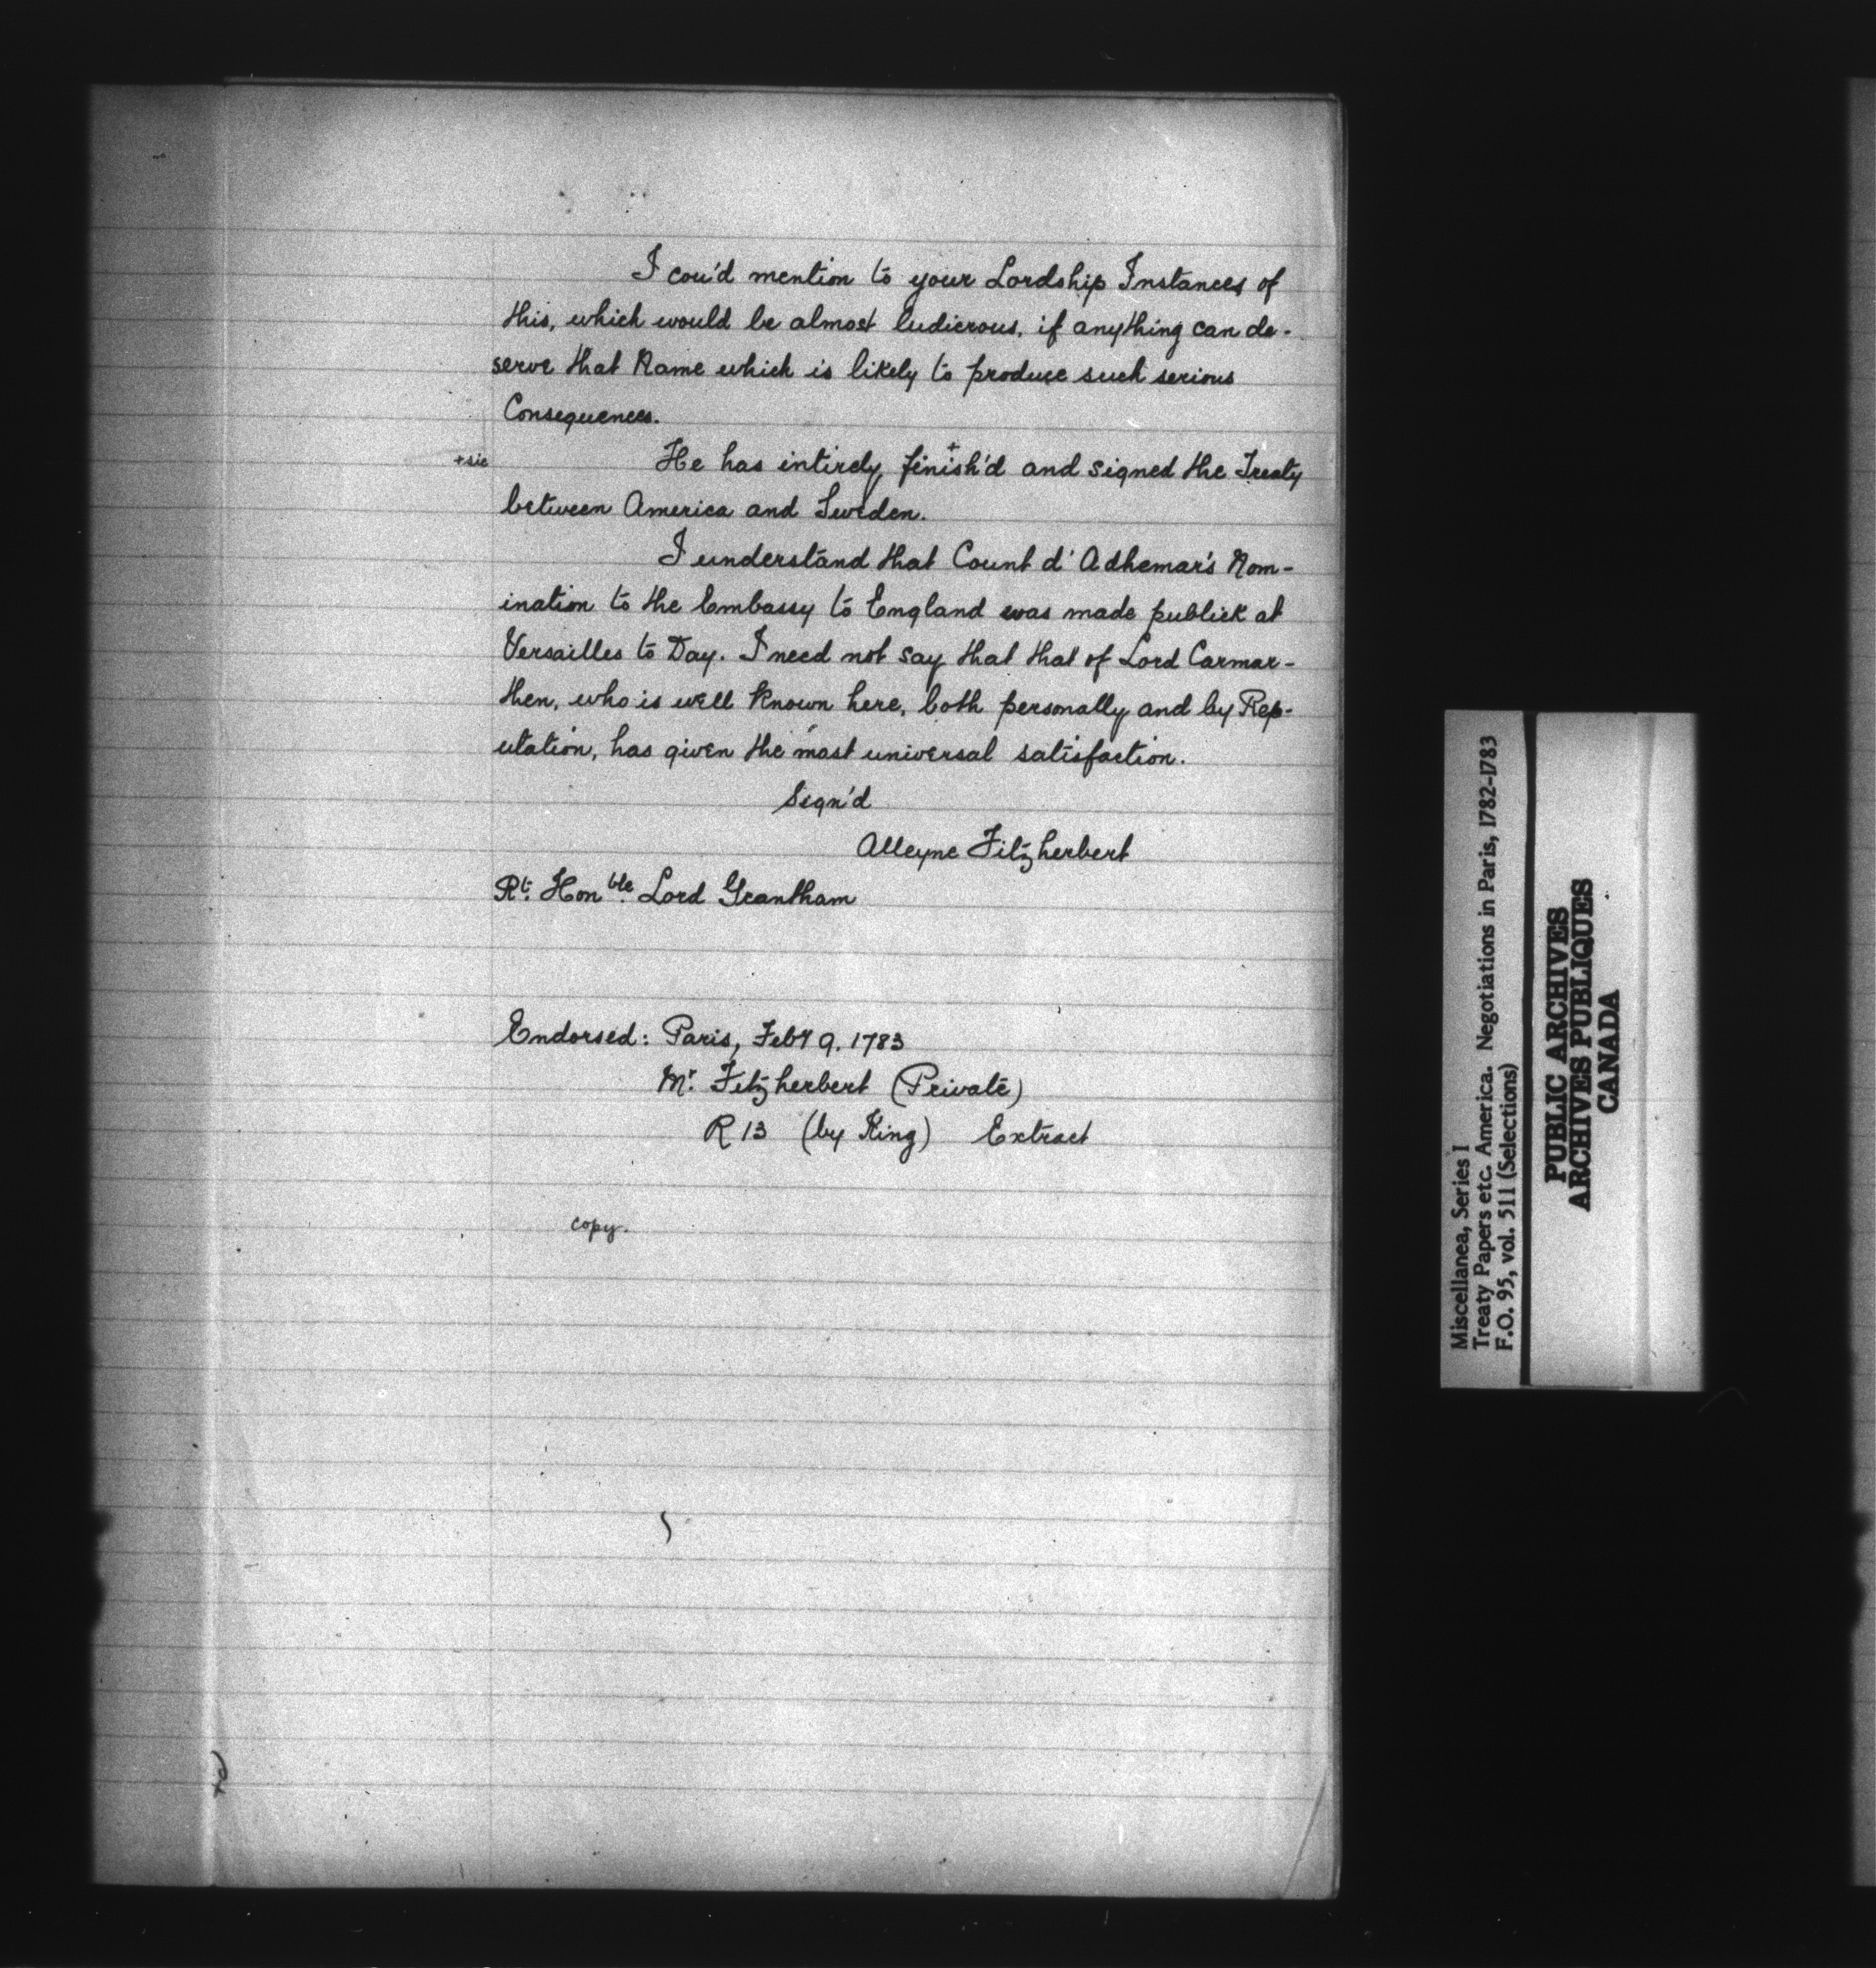 I cou'd mention to your Lordship Instances of
this, which would be almost ludicrous, if anything can de-
serve that Name which is likely to produce such serious
Consequences.
+sic He has intirely finish'd + and signed the Treaty
between America and Sweden.
I understand that Count d'Adhemar's Nom-
ination to the Embassy to England was made publick at
Versailles to Day. I need not say that that of Lord Carmar-
then, who is well known here, both personally and by Rep-
utation, has given the most universal satisfaction.
Sign'd
Alleyne Fitzherbert
Rt. Honble. Lord Grantham
Endorsed: Paris, Feby 9. 1783
Mr. Fitzherbert (Private)
R 13 (by King) Extract
copy.
Miscellanea, Series I
Treaty Papers etc. America. Negotiations in Paris, 1782-1783
F.O. 95, vol. 511 (Selections)
PUBLIC ARCHIVES
ARCHIVES PUBLIQUES
CANADA